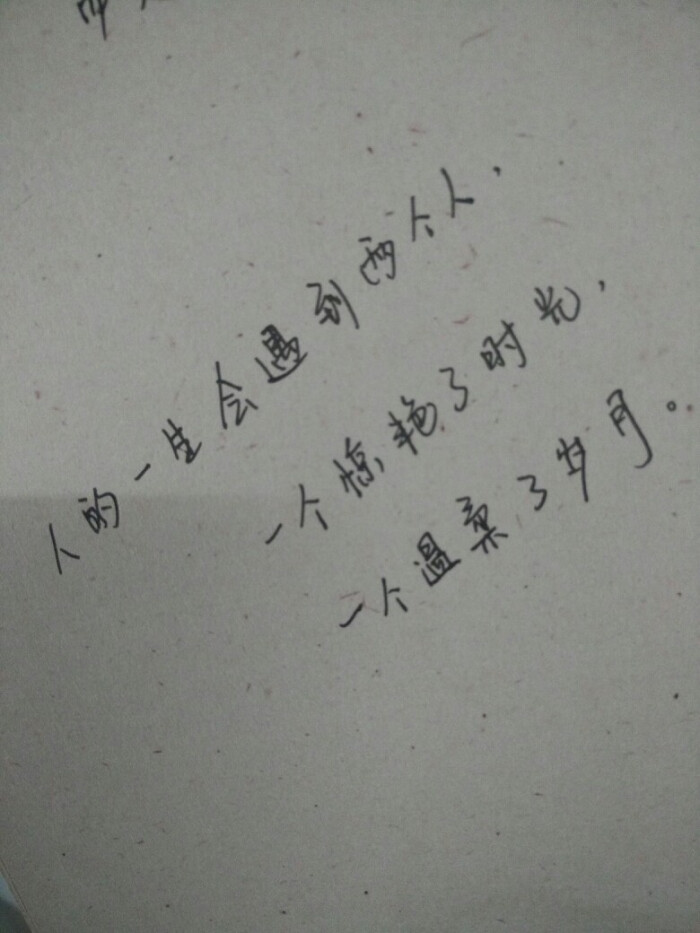 人的一生会遇到两个人，
一个惊艳了时光，
一个温柔了岁月。